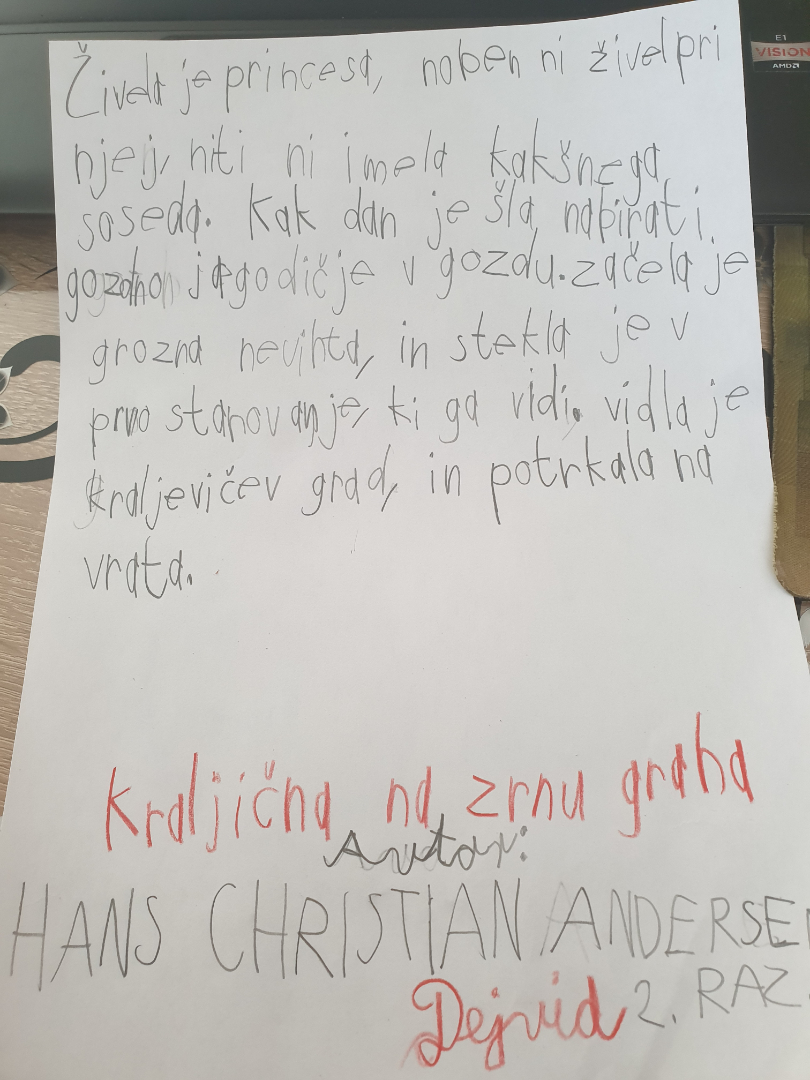 E1
VISION
AMD
Živela je princesa, noben ni živel pri
njej, niti ni imela kakšnega
soseda. Kak dan je šla nabirati
gozdno jagodičje v gozdu. začela je
grozna nevihta, in stekla je v
prvo stanovanje, ki ga vidi. vidla je
kraljevičev grad, in potrkala na
vrata.
Kraljična na zrnu graha
Avtor:
HANS CHRISTIAN ANDERSEN
Dejvid 2. RAZ.